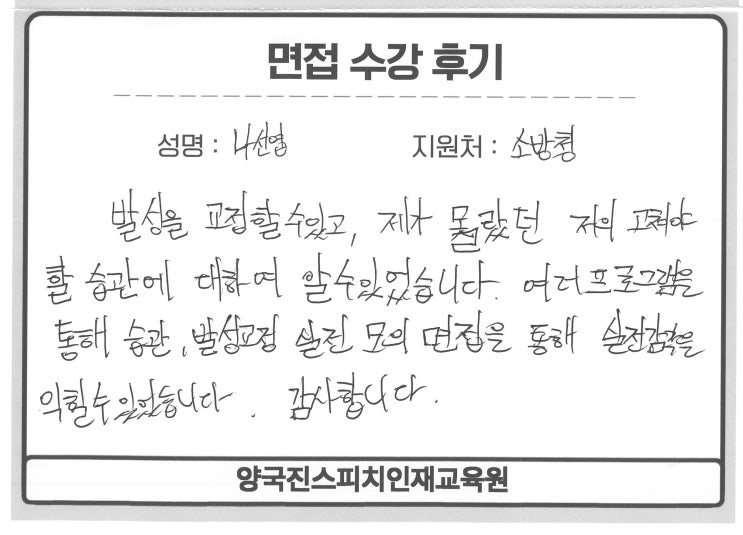 면접 수강 후기
성명 : 나선엽
지원처 : 소방청
발성을 교정할수있고, 제가 몰랐던 저의 고쳐야
할 습관에 대하여 알수있었습니다. 여러프로그램을
통해 습관, 발성교정 실전 모의 면접을 통해 실전감각을
익힐수 있었습니다. 감사합니다.
양국진스피치인재교육원